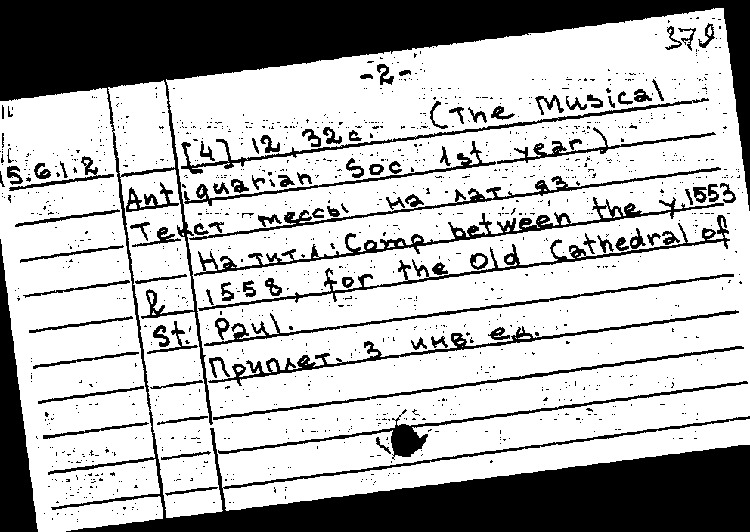 379
-2-
5.6.1.2 [4], 12, 32 с. (The Musical
Antiquarian Soc. 1st year).
Текст мессы на лат. яз.
На тит. л.: Comp. between the y. 1553
& 1558, for the Old Cathedral of
St. Paul.
Приплет. 3 инв. ед.